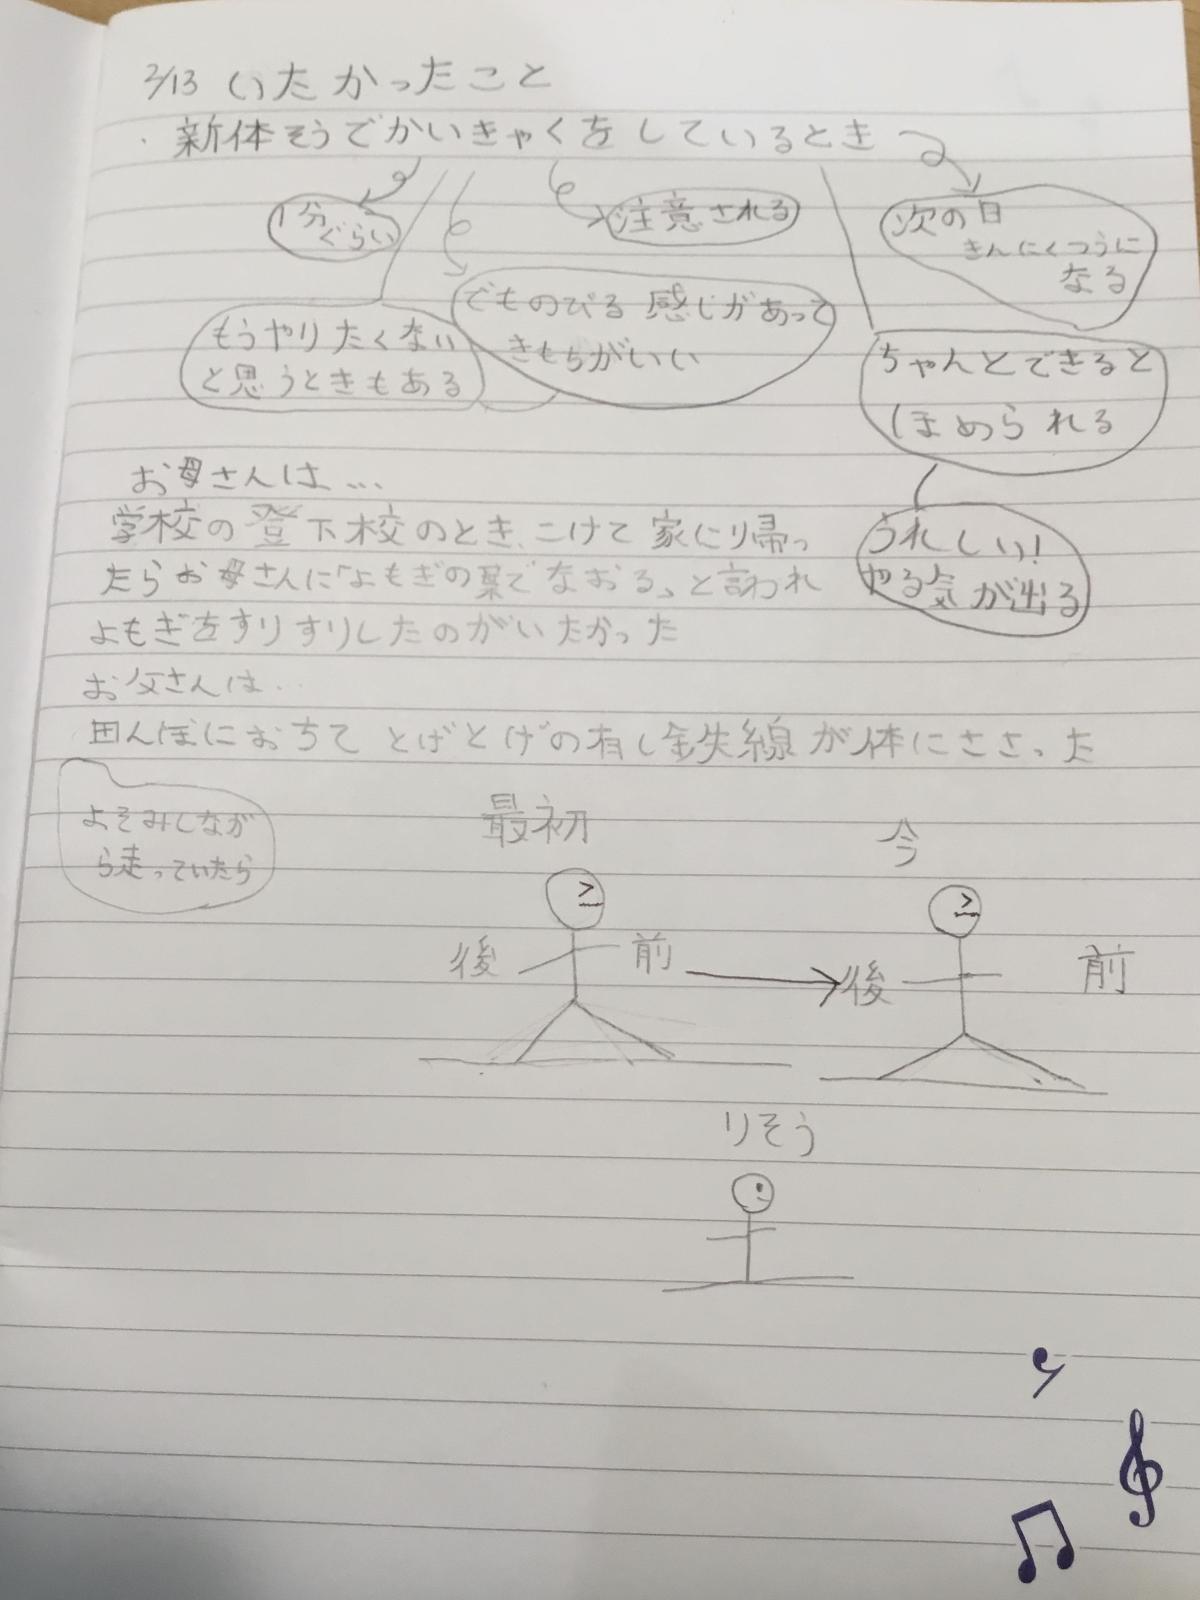 2/13 いたかったこと
・新体そうでかいきゃくをしているとき
1分
ぐらい
注意される
次の日
きんにくつうに
なる
でものびる感じがあって
きもちがいい
もうやりたくない
と思うときもある
ちゃんとできると
ほめられる
うれしい!
やる気が出る
お母さんは…
学校の登下校のとき、こけて家に帰っ
たらお母さんに「よもぎの葉でなおる」と言われ
よもぎをすりすりしたのがいたかった
お父さんは…
田んぼにおちてとげとげの有し鉄線が体にささった
よそみしなが
ら走っていたら
最初
今
後
前
後
前
りそう